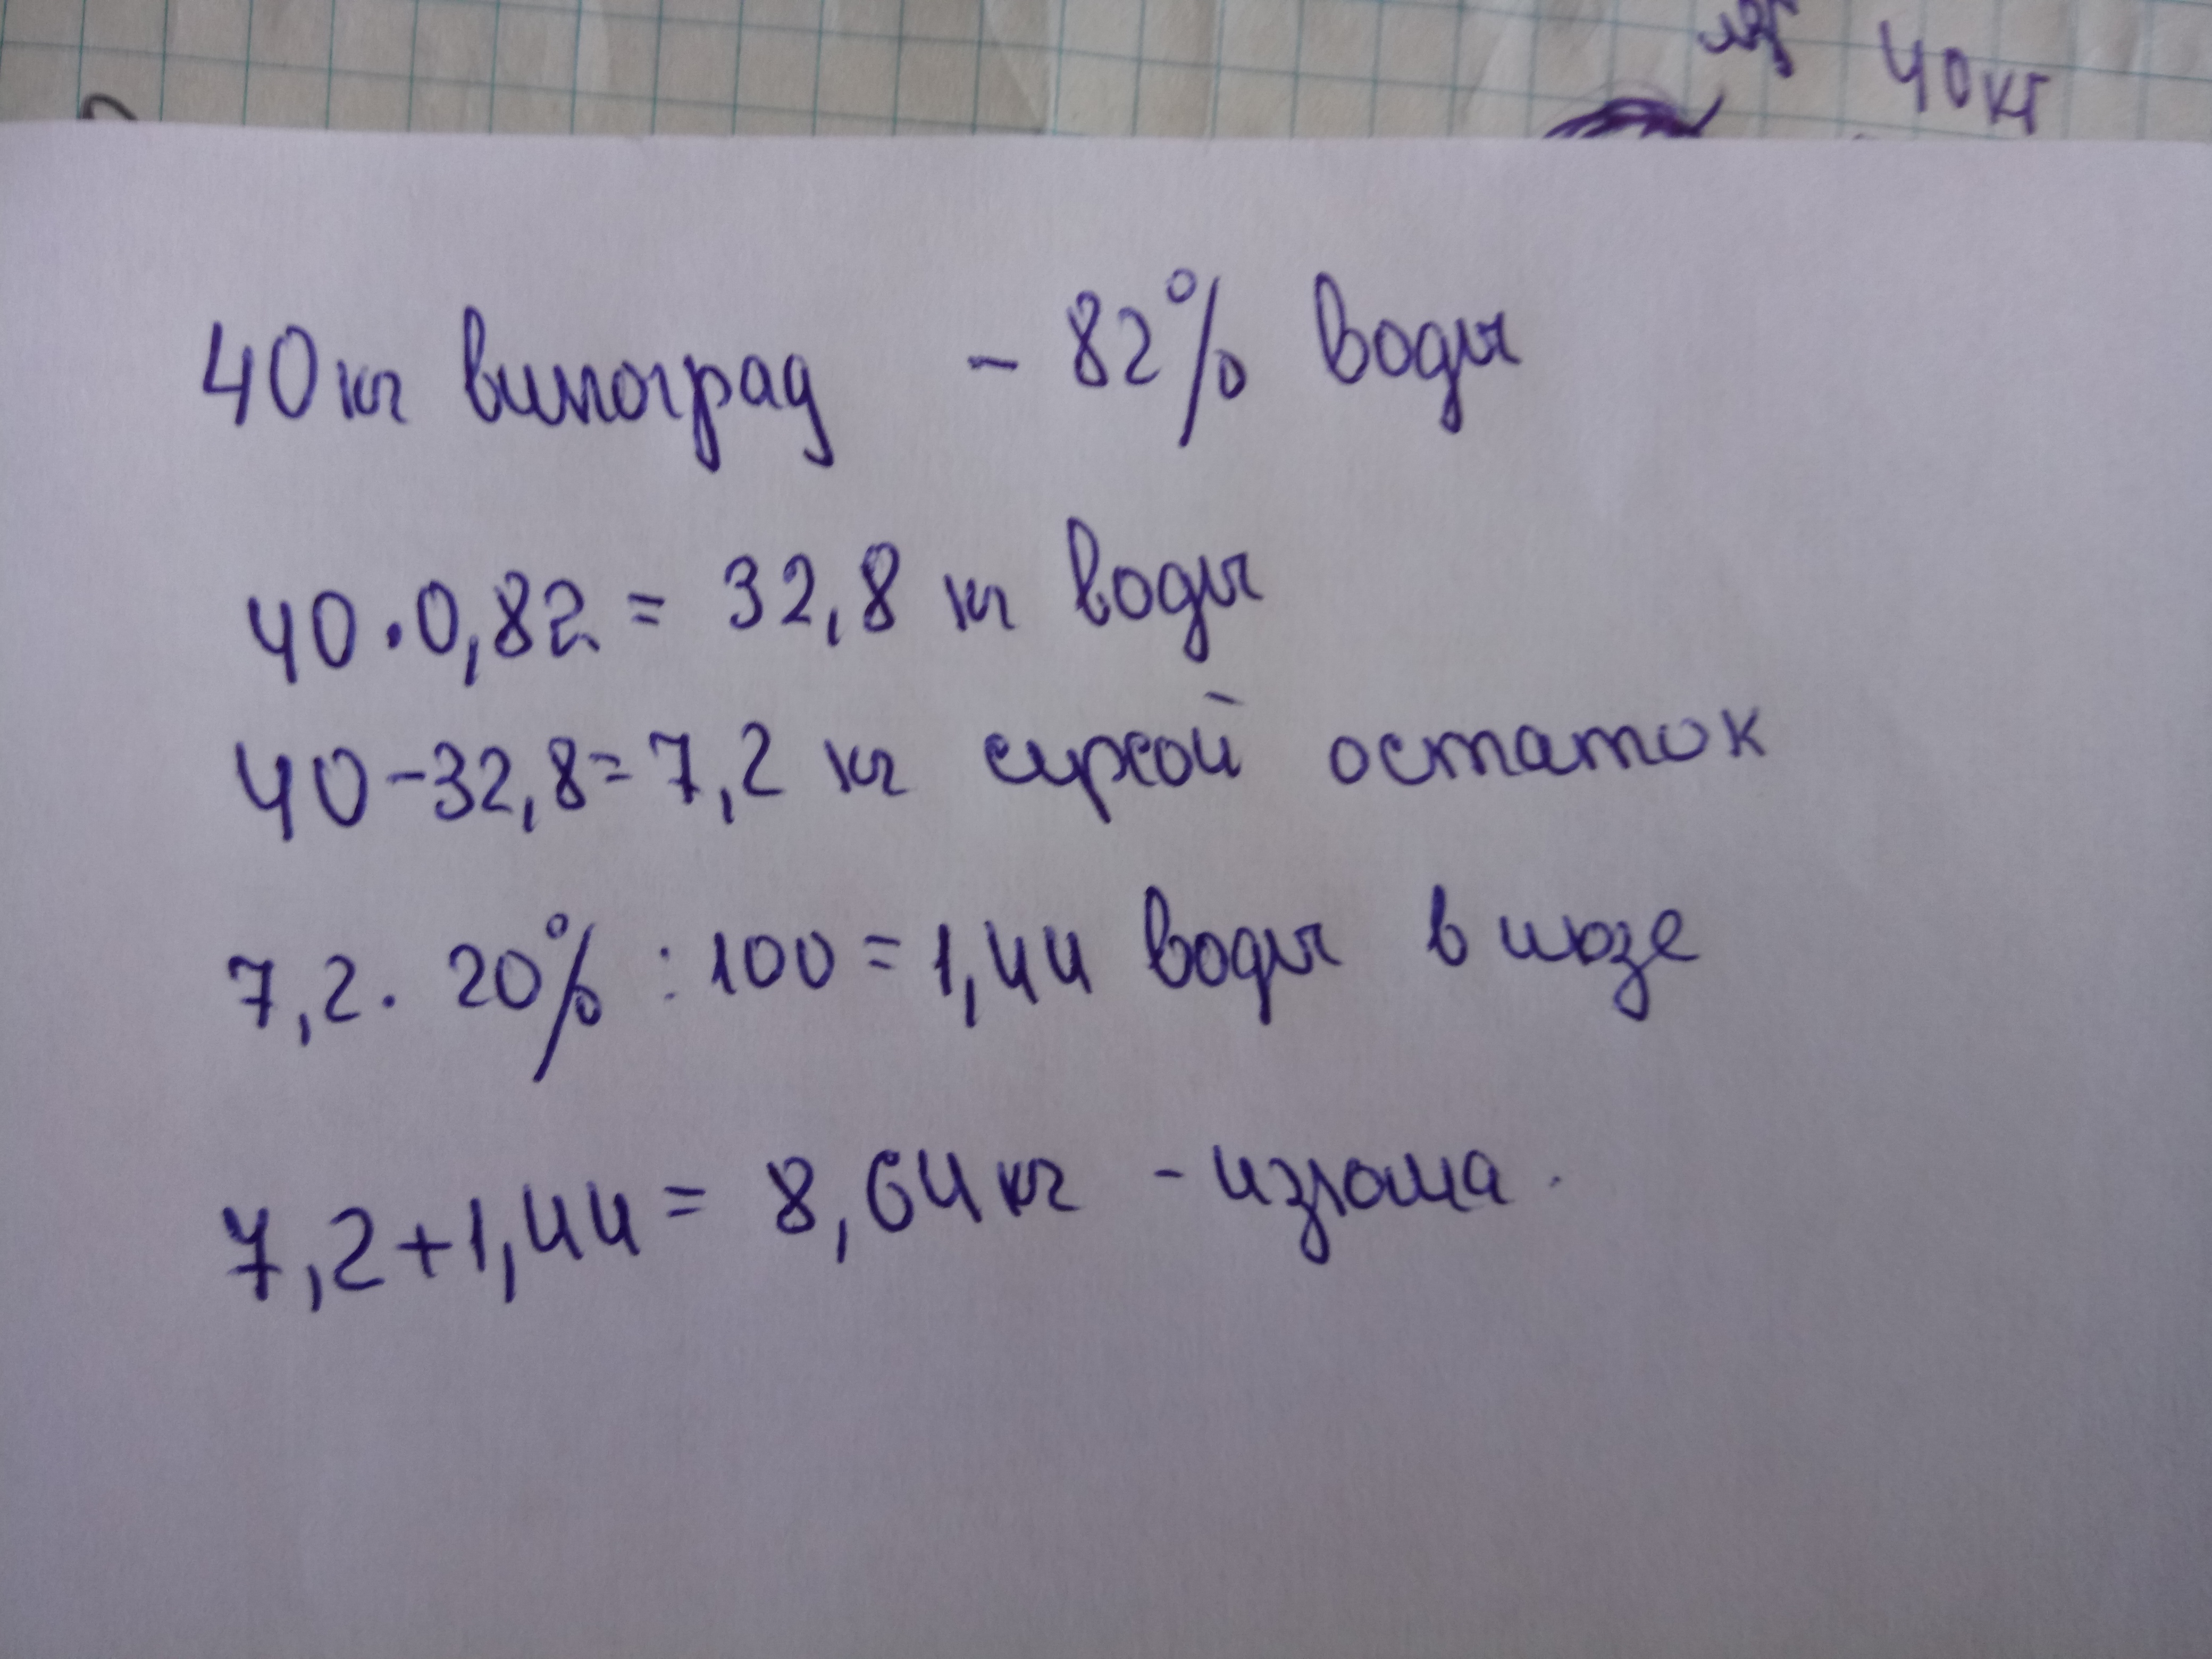 40кг
40кг виноград - 82% воды
40·0,82 = 32,8 кг воды
40-32,8=7,2 кг сухой остаток
7,2· 20% : 100 = 1,44 воды в изюзе
7,2+1,44 = 8,64кг - изюма.